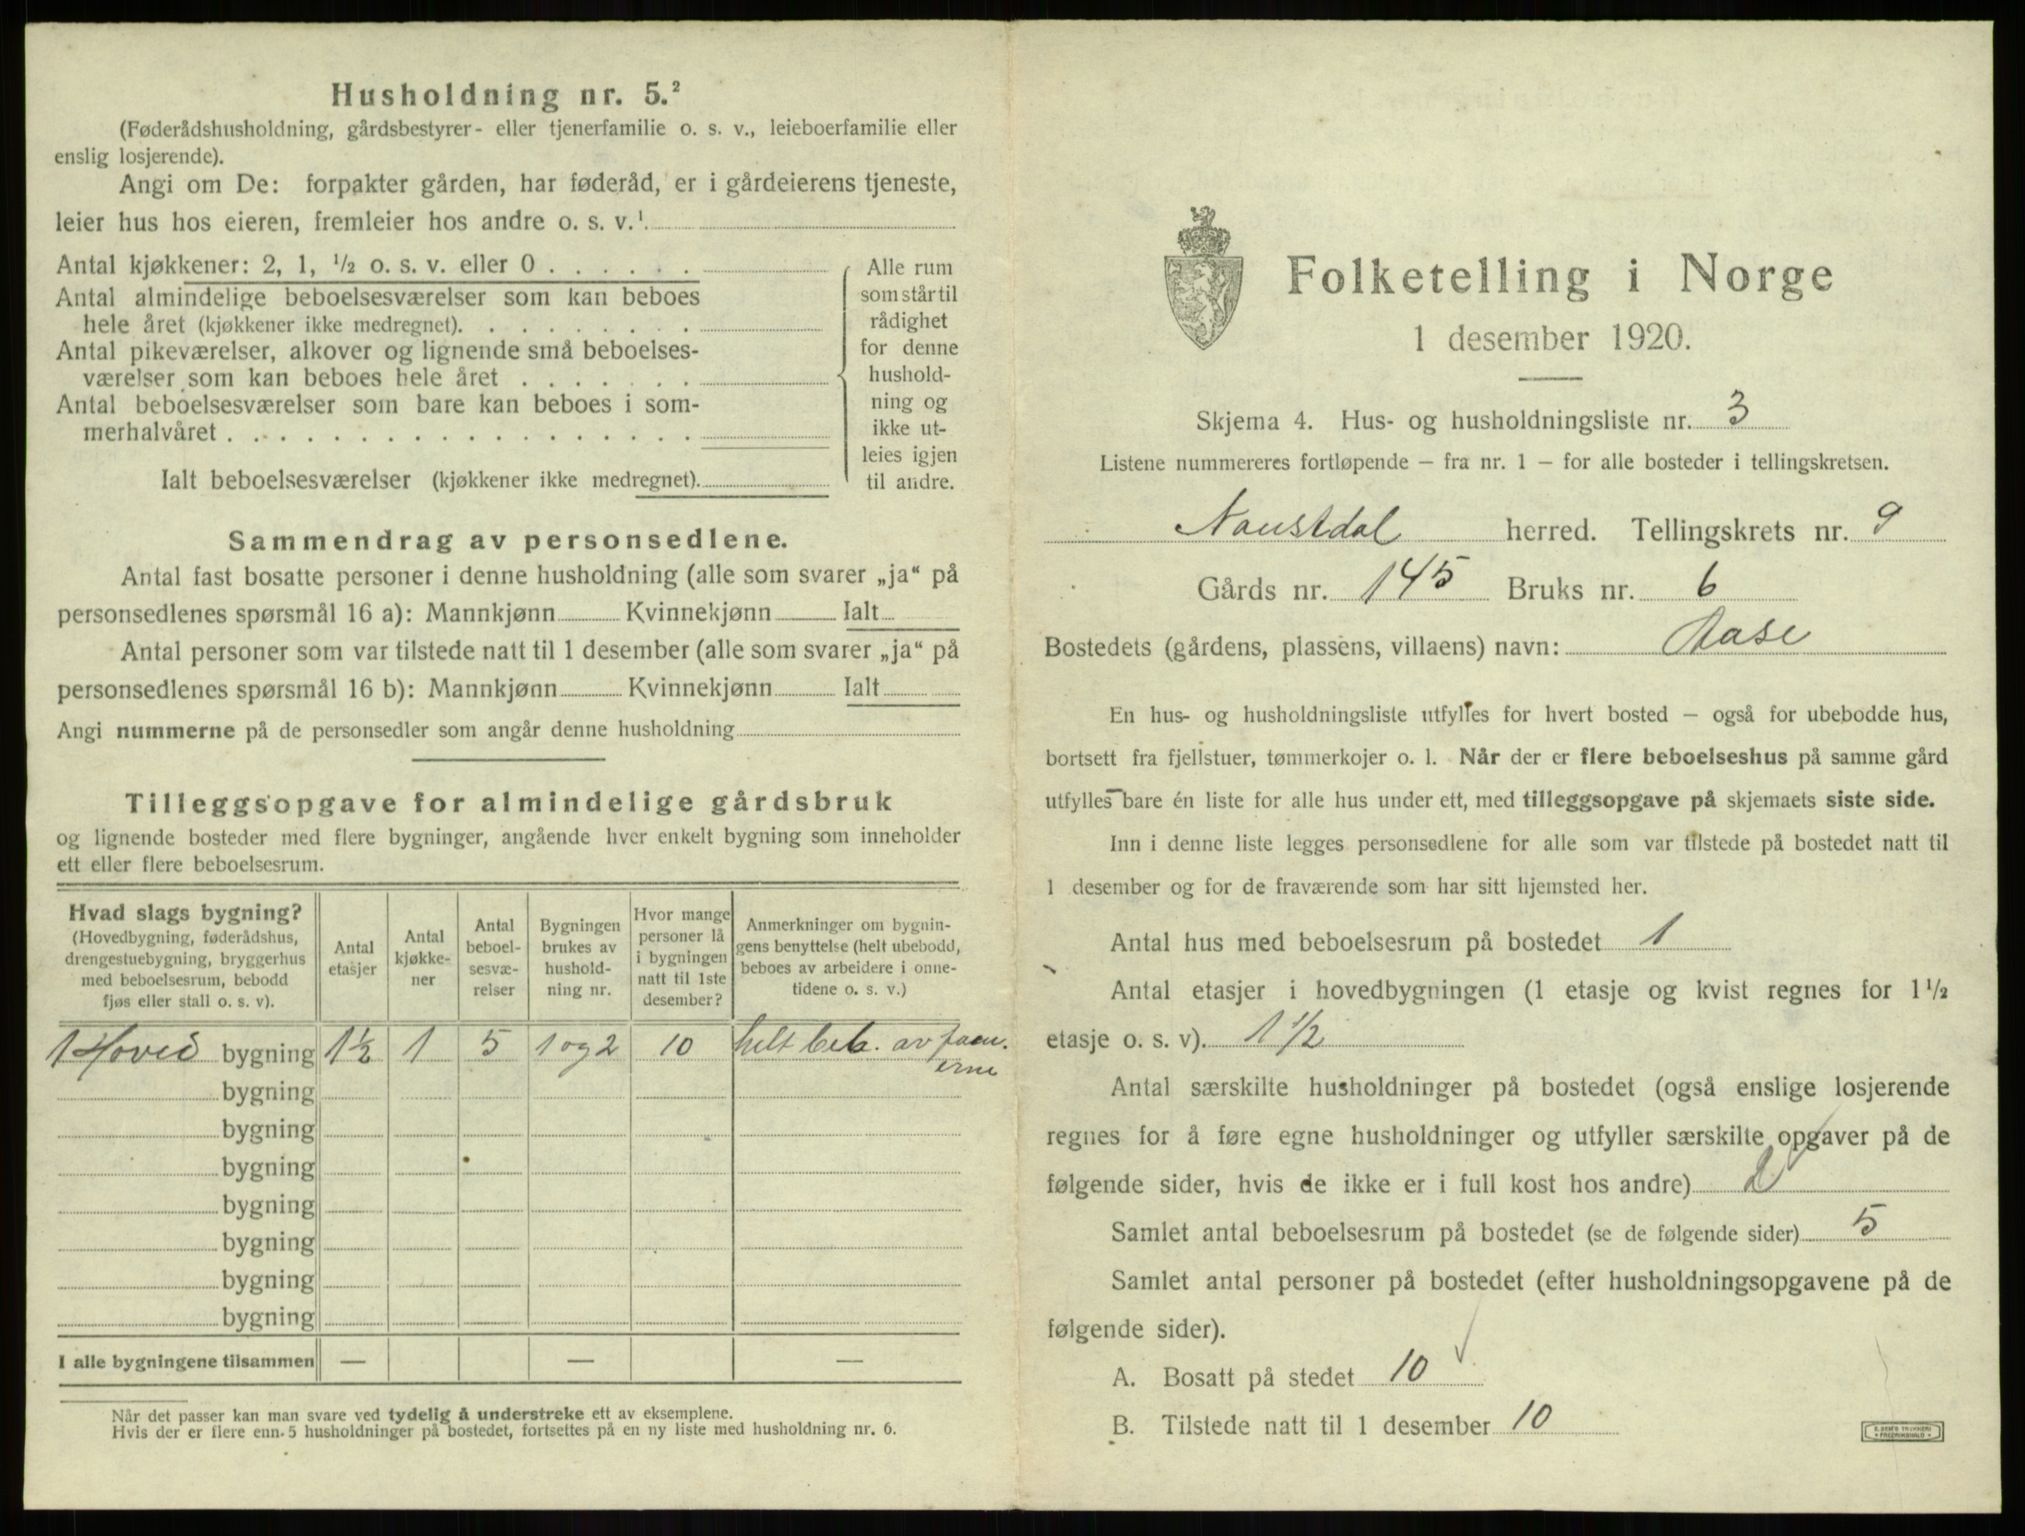 Husholdning nr. 5.²
(Føderådshusholdning, gårdsbestyrer- eller tjenerfamilie o. s. v., leieboerfamilie eller
enslig losjerende).
Angi om De: forpakter gården, har føderåd, er i gårdeierens tjeneste,
leier hus hos eieren, fremleier hos andre o. s. v.¹
Antal kjøkkener: 2, 1, ½ o. s. v. eller 0 . . . . . .
Antal almindelige beboelsesværelser som kan beboes
hele året (kjøkkener ikke medregnet). . . . . . . . .
Antal pikeværelser, alkover og lignende små beboelses-
værelser som kan beboes hele året . . . . . . .
Antal beboelsesværelser som bare kan beboes i som-
merhalvåret . . . . . . . . . . . . . . . . . .
Ialt beboelsesværelser (kjøkkener ikke medregnet).
Alle rum
som står til
rådighet
for denne
hushold-
ning og
ikke ut-
leies igjen
til andre.
Sammendrag av personsedlene.
Antal fast bosatte personer i denne husholdning (alle som svarer „ja“ på
personsedlenes spørsmål 16 a): Mannkjønn Kvinnekjønn Ialt
Antal personer som var tilstede natt til 1 desember (alle som svarer „ja“ på
personsedlenes spørsmål 16 b): Mannkjønn Kvinnekjønn Ialt
Angi nummerne på de personsedler som angår denne husholdning
Tilleggsopgave for almindelige gårdsbruk
og lignende bosteder med flere bygninger, angående hver enkelt bygning som inneholder
ett eller flere beboelsesrum.
Hvad slags bygning?
(Hovedbygning, føderådshus,
drengestuebygning, bryggerhus
med beboelsesrum, bebodd
fjøs eller stall o. s. v).
Antal
etasjer
Antal
kjøkke-
ner
Antal
beboel-
sesvæ-
relser
Bygningen
brukes av
hushold-
ning nr.
Hvor mange
personer lå
i bygningen
natt til 1ste
desember?
Anmerkninger om bygnin-
gens benyttelse (helt ubebodd,
beboes av arbeidere i onne-
tidene o. s. v.)
1 Hoved bygning 1½ 1 5 1 og 2 10 helt beb. av
erne
bygning
bygning
bygning
bygning
bygning
bygning
bygning
I alle bygningene tilsammen — — —
Når det passer kan man svare ved tydelig å understreke ett av eksemplene.
Hvis der er flere enn 5 husholdninger på bostedet, fortsettes på en ny liste med husholdning nr. 6.
Folketelling i Norge
1 desember 1920.
Skjema 4. Hus- og husholdningsliste nr. 3
Listene nummereres fortløpende — fra nr. 1 — for alle bosteder i tellingskretsen.
Naustdal herred. Tellingskrets nr. 9
Gårds nr. 145 Bruks nr. 6
Bostedets (gårdens, plassens, villaens) navn: Aase
En hus- og husholdningsliste utfylles for hvert bosted — også for ubebodde hus,
bortsett fra fjellstuer, tømmerkojer o. l. Når der er flere beboelseshus på samme gård
utfylles bare én liste for alle hus under ett, med tilleggsopgave på skjemaets siste side.
Inn i denne liste legges personsedlene for alle som var tilstede på bostedet natt til
1 desember og for de fraværende som har sitt hjemsted her.
Antal hus med beboelsesrum på bostedet 1
Antal etasjer i hovedbygningen (1 etasje og kvist regnes for 1½
etasje o. s. v). 1 1/2
Antal særskilte husholdninger på bostedet (også enslige losjerende
regnes for å føre egne husholdninger og utfyller særskilte opgaver på de
følgende sider, hvis de ikke er i full kost hos andre) 2
Samlet antal beboelsesrum på bostedet (se de følgende sider) 5
Samlet antal personer på bostedet (efter husholdningsopgavene på de
følgende sider).
A. Bosatt på stedet 10
B. Tilstede natt til 1 desember 10